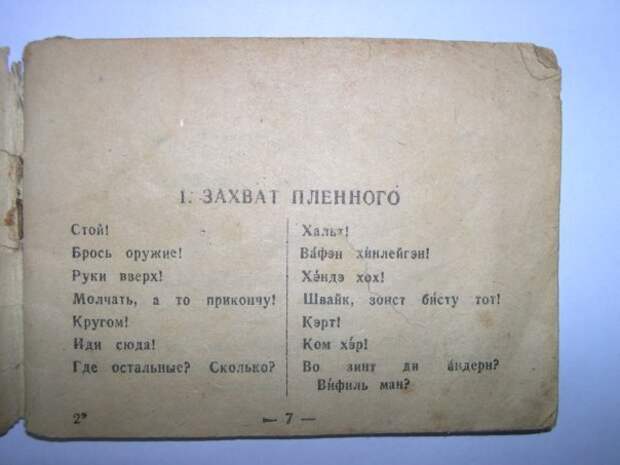 1. ЗАХВАТ ПЛЕННОГО
Стой! Хальт!
Брось оружие! Ва́фэн хи́нлейгэн!
Руки вверх! Хэ́ндэ хох!
Молчать, а то прикончу! Швайк, зонст би́сту тот!
Кругом! Кэрт!
Иди сюда! Ком хэ́р!
Где остальные? Сколько? Во зинт ди а́ндерн?
Ви́филь ман?
2* — 7 —